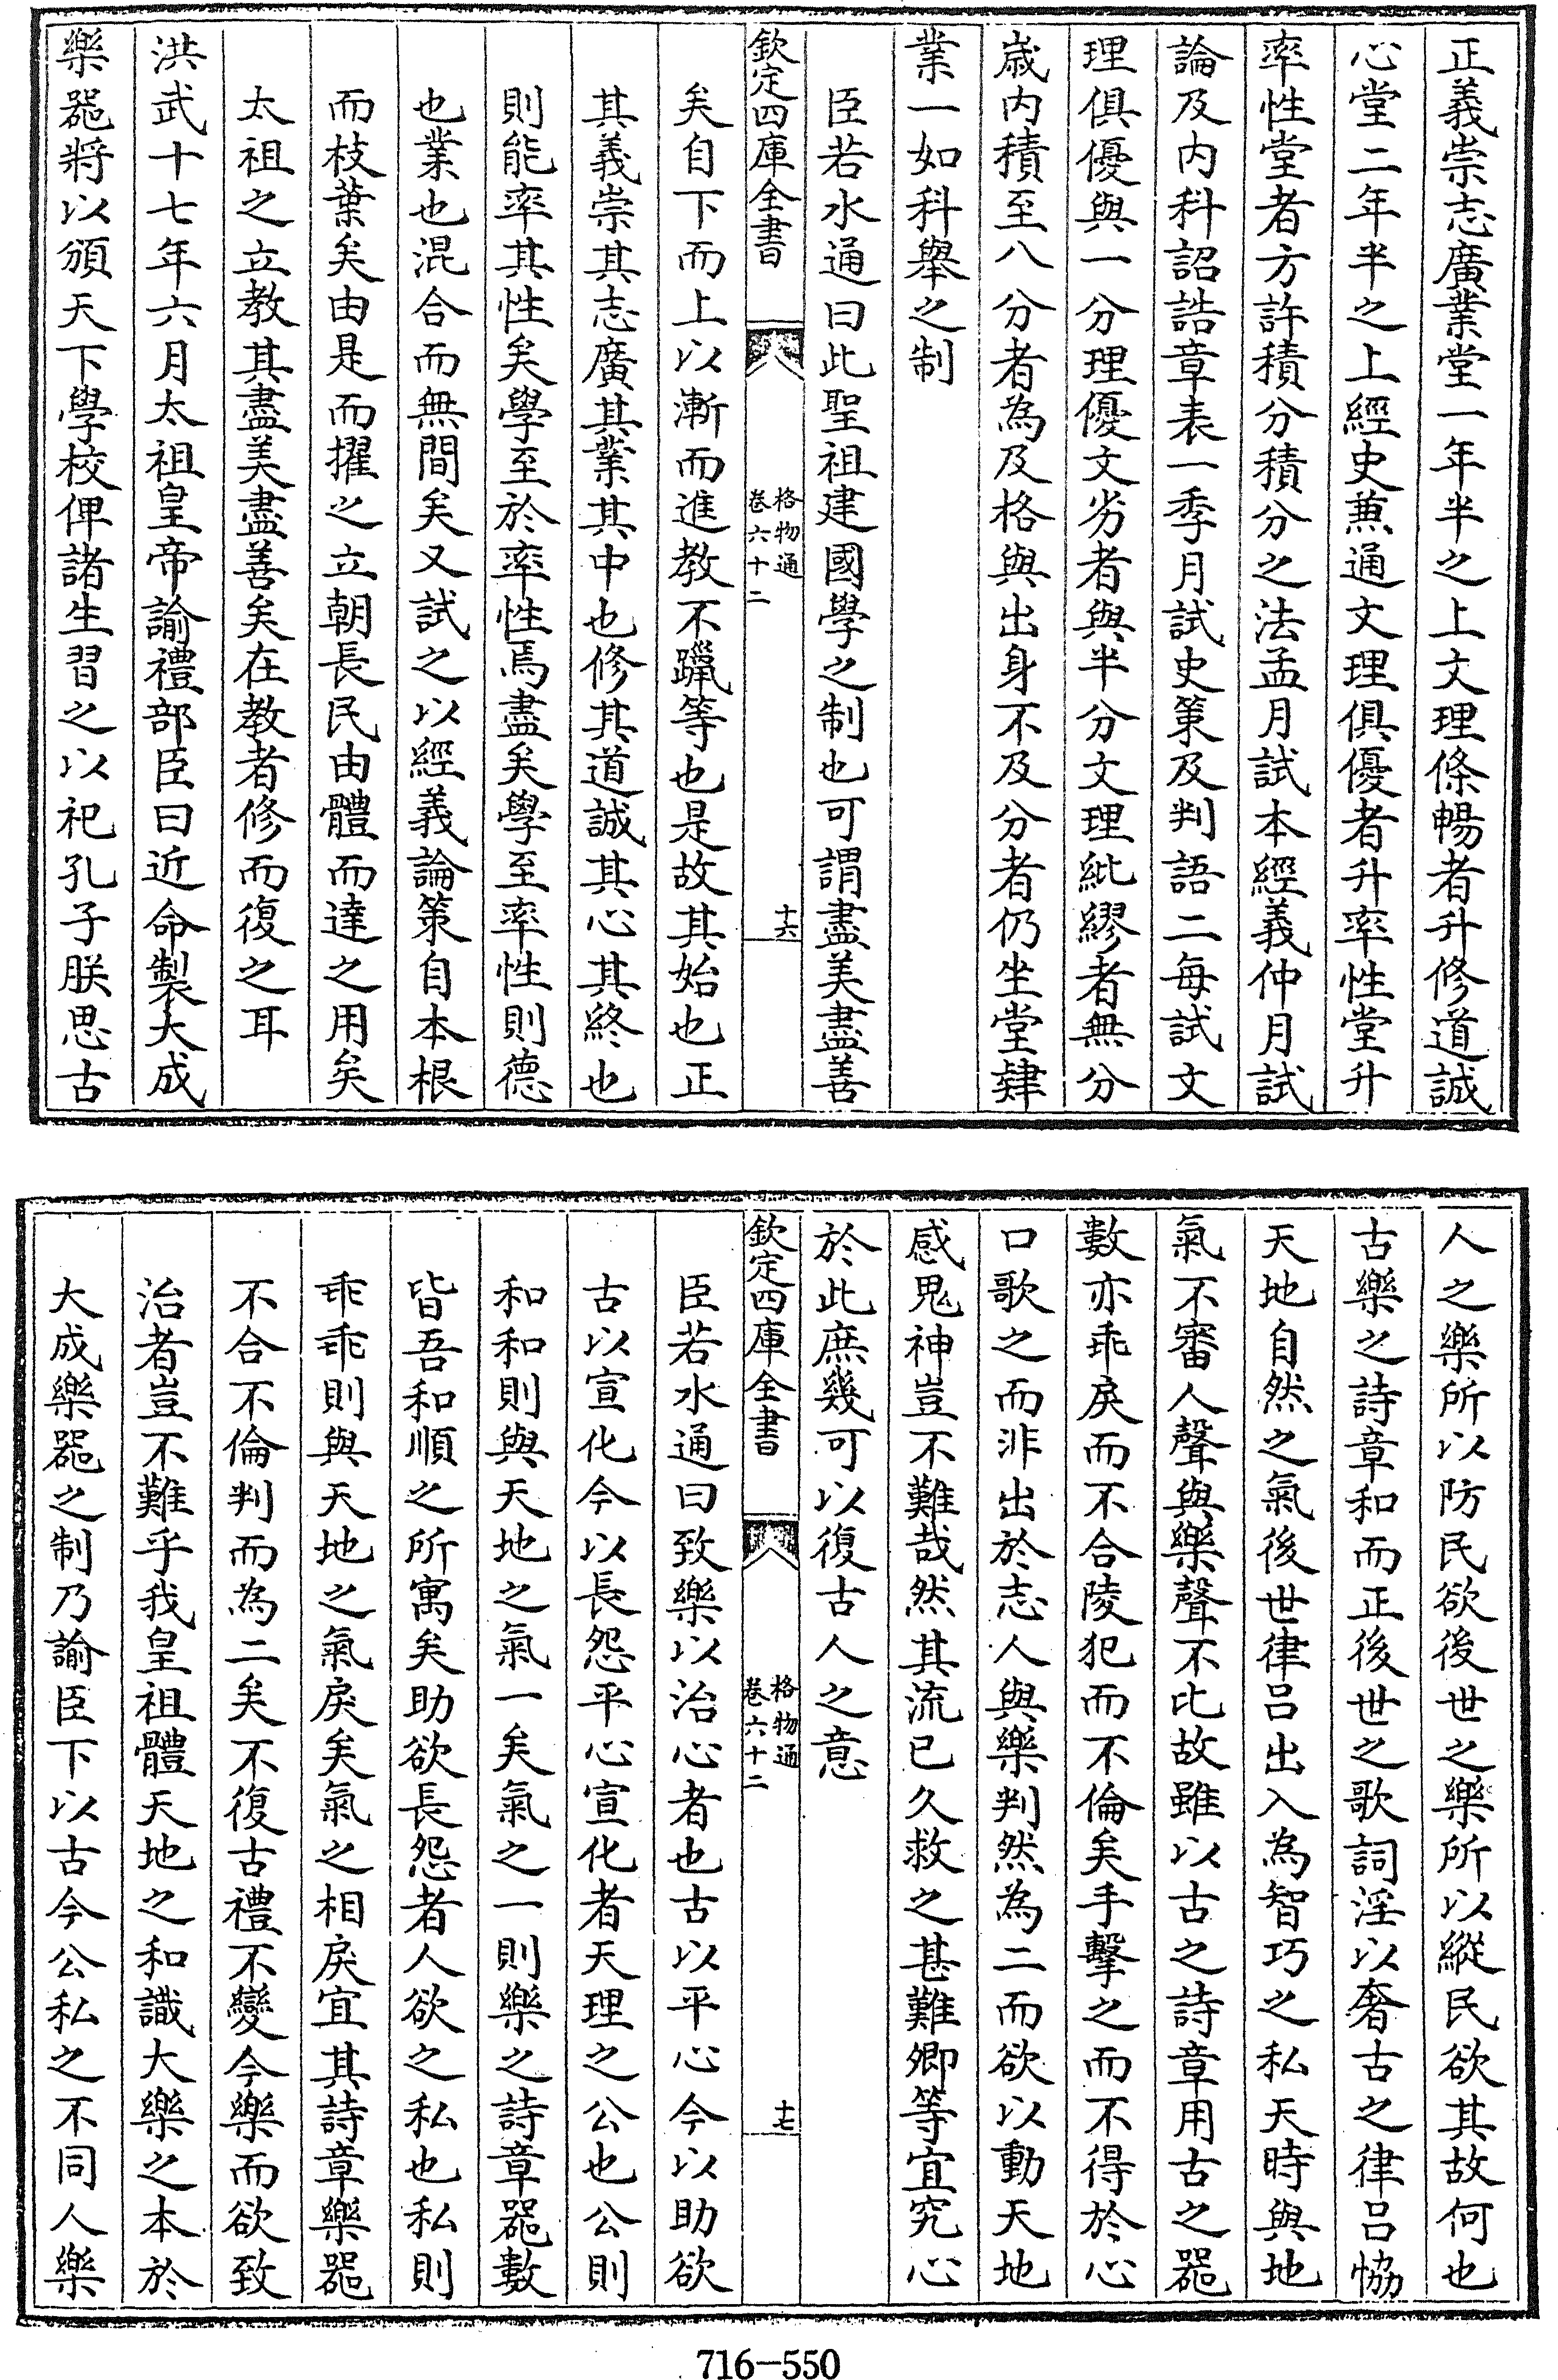 正義崇志廣業堂一年半之上文理條暢者升修道誠
心堂二年半之上經史兼通文理俱優者升率性堂升
率性堂者方許積分積分之法孟月試本經義仲月試
論及内科詔誥章表一季月試史策及判語二每試文
理俱優與一分理優文劣者與半分文理紕繆者無分
歲内積至八分者為及格與出身不及分者仍坐堂肄
業一如科舉之制
臣若水通曰此聖祖建國學之制也可謂盡美盡善
欽定四庫全書
格物通
卷六十二
十六
矣自下而上以漸而進教不躐等也是故其始也正
其義崇其志廣其業其中也修其道誠其心其終也
則能率其性矣學至於率性焉盡矣學至率性則德
也業也混合而無間矣又試之以經義論策自本根
而枝葉矣由是而擢之立朝長民由體而達之用矣
太祖之立教其盡美盡善矣在教者修而復之耳
洪武十七年六月太祖皇帝諭禮部臣曰近命製大成
樂器將以頒天下學校俾諸生習之以祀孔子朕思古
人之樂所以防民欲後世之樂所以縱民欲其故何也
古樂之詩章和而正後世之歌詞淫以奢古之律吕恊
天地自然之氣後世律吕出入為智巧之私天時與地
氣不審人聲與樂聲不比故雖以古之詩章用古之器
數亦乖戾而不合陵犯而不倫矣手擊之而不得於心
口歌之而非出於志人與樂判然為二而欲以動天地
感鬼神豈不難哉然其流已久救之甚難卿等宜究心
於此庶幾可以復古人之意
欽定四庫全書
格物通
卷六十二
十七
臣若水通曰致樂以治心者也古以平心今以助欲
古以宣化今以長怨平心宣化者天理之公也公則
和和則與天地之氣一矣氣之一則樂之詩章器數
皆吾和順之所寓矣助欲長怨者人欲之私也私則
乖乖則與天地之氣戾矣氣之相戾宜其詩章樂器
不合不倫判而為二矣不復古禮不變今樂而欲致
治者豈不難乎我皇祖體天地之和識大樂之本於
大成樂器之制乃諭臣下以古今公私之不同人樂
716-550